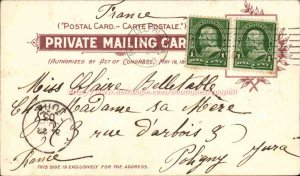 France
("POSTAL CARD. — CARTE POSTALE.")
PRIVATE MAILING CAR
(AUTHORIZED BY ACT OF CONGRESS, MAY 19, 18
Miss Claire Belletable
Chez Madame sa Mère
3 rue d'arbois 3
France
Poligny Jura
THIS SIDE IS EXCLUSIVELY FOR THE ADDRESS.